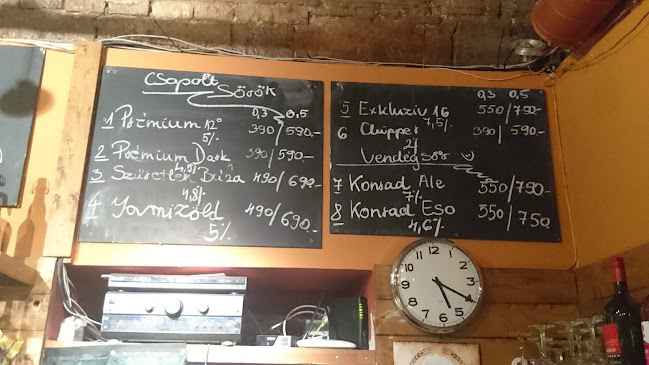 Csapolt
Sörök
0,3 0,5
1 Prémium 12° 390/590.-
5%
2 Prémium Dark 390/590.-
4,5%
3 Szűretlen Búza 490/690.-
4,8%
4 490/690.-
5%
0,3 0,5
5 Exkluziv 16 550/790.-
7,5%
6 Chipper 390/590.-
2%
Vendég sör
7 Konrad Ale 550/790.-
7%
8 Konrad Eso 550/750
4,6%
12 1 2 3 4 5 6 7 8 9 10 11